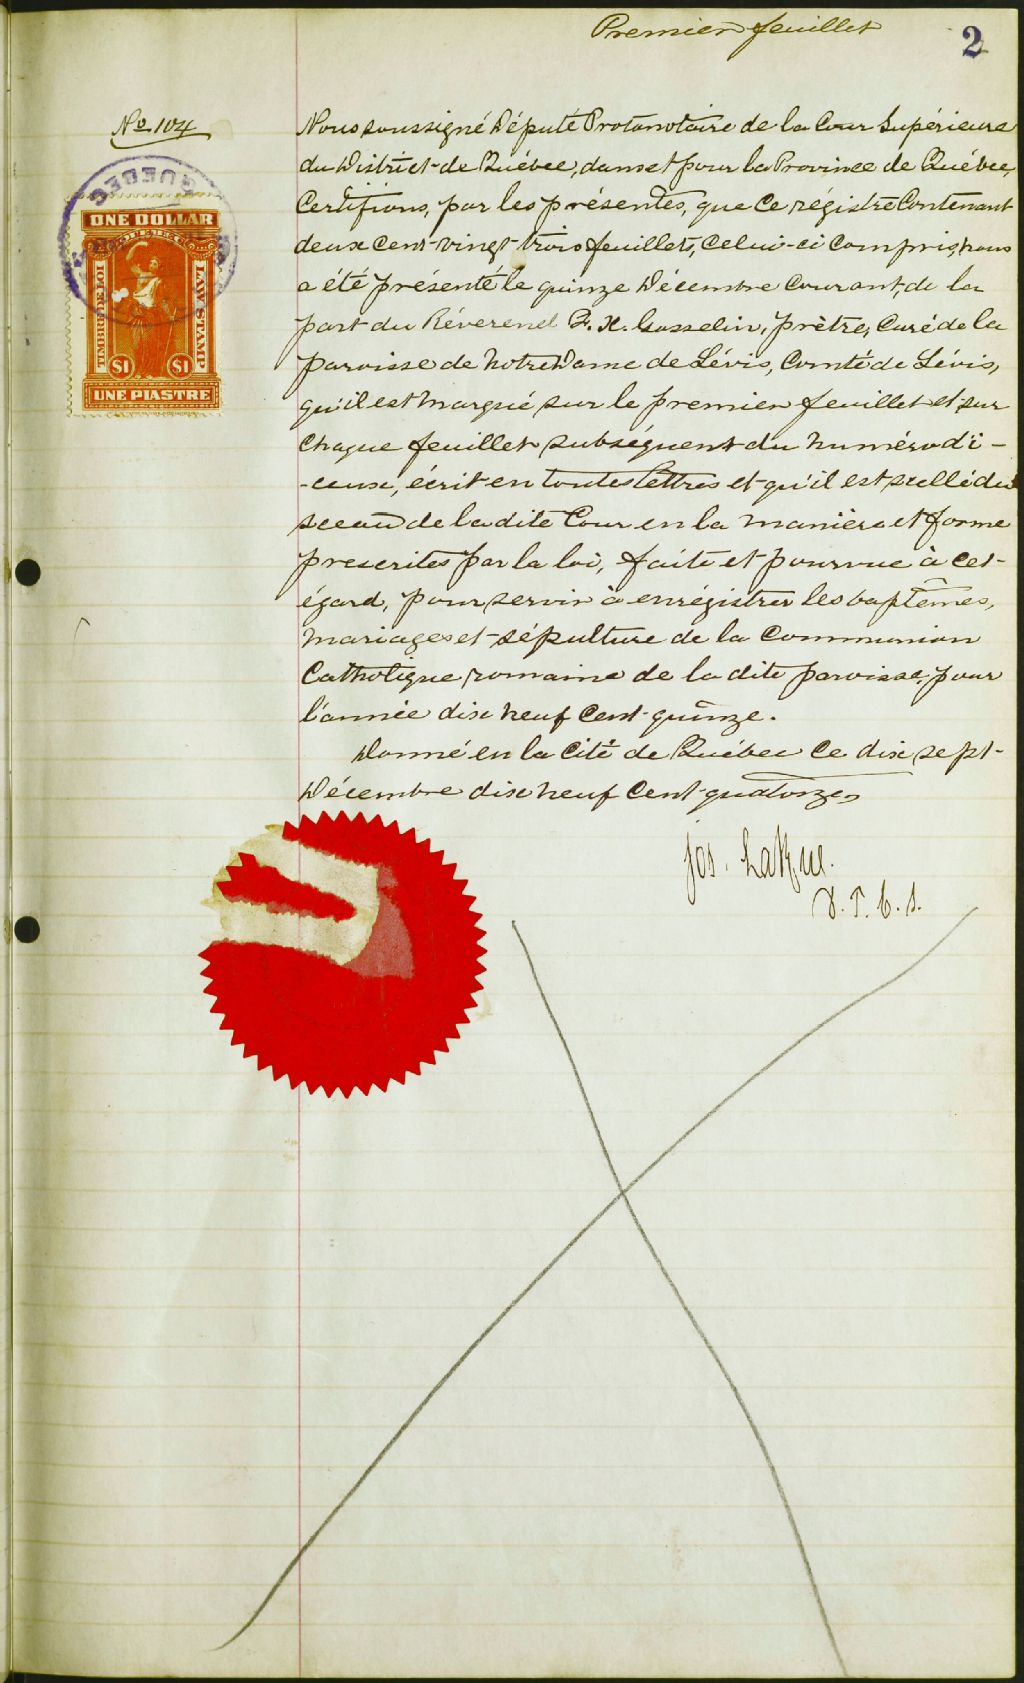 Premier feuillet
2
No 104
QUEBEC
ONE DOLLAR
TIMBRE DE LOI
LAW STAMP
$1 $1
UNE PIASTRE
Nous soussigné Député Protonotaire de la Cour Supérieure
du District de Québec, dans et pour la Province de Québec,
Certifions, par les présentes, que ce régistre Contenant
deux cent vingt-trois feuillets, celui-ci compris, nous
a été présenté le quinze Décembre courant, de la
part du Révérend F. X. Gosselin, prêtre, Curé de la
paroisse de Notre Dame de Lévis, Comté de Lévis,
qu'il est marqué sur le premier feuillet et sur
chaque feuillet subséquent du numéro d'i-
-ceux, écrit en toutes lettres et qu'il est scellé du
sceau de la dite Cour en la manière et forme
prescrites par la loi, faite et pourvue à cet
égard, pour servir à enrégistrer les baptêmes,
mariages et sépulture de la Communion
Catholique romaine de la dite paroisse, pour
l'année dix neuf cent quinze.
Donné en la Cité de Québec ce dix sept
Décembre dix neuf cent quatorze
Jos. LaRue.
D. P. C. S.